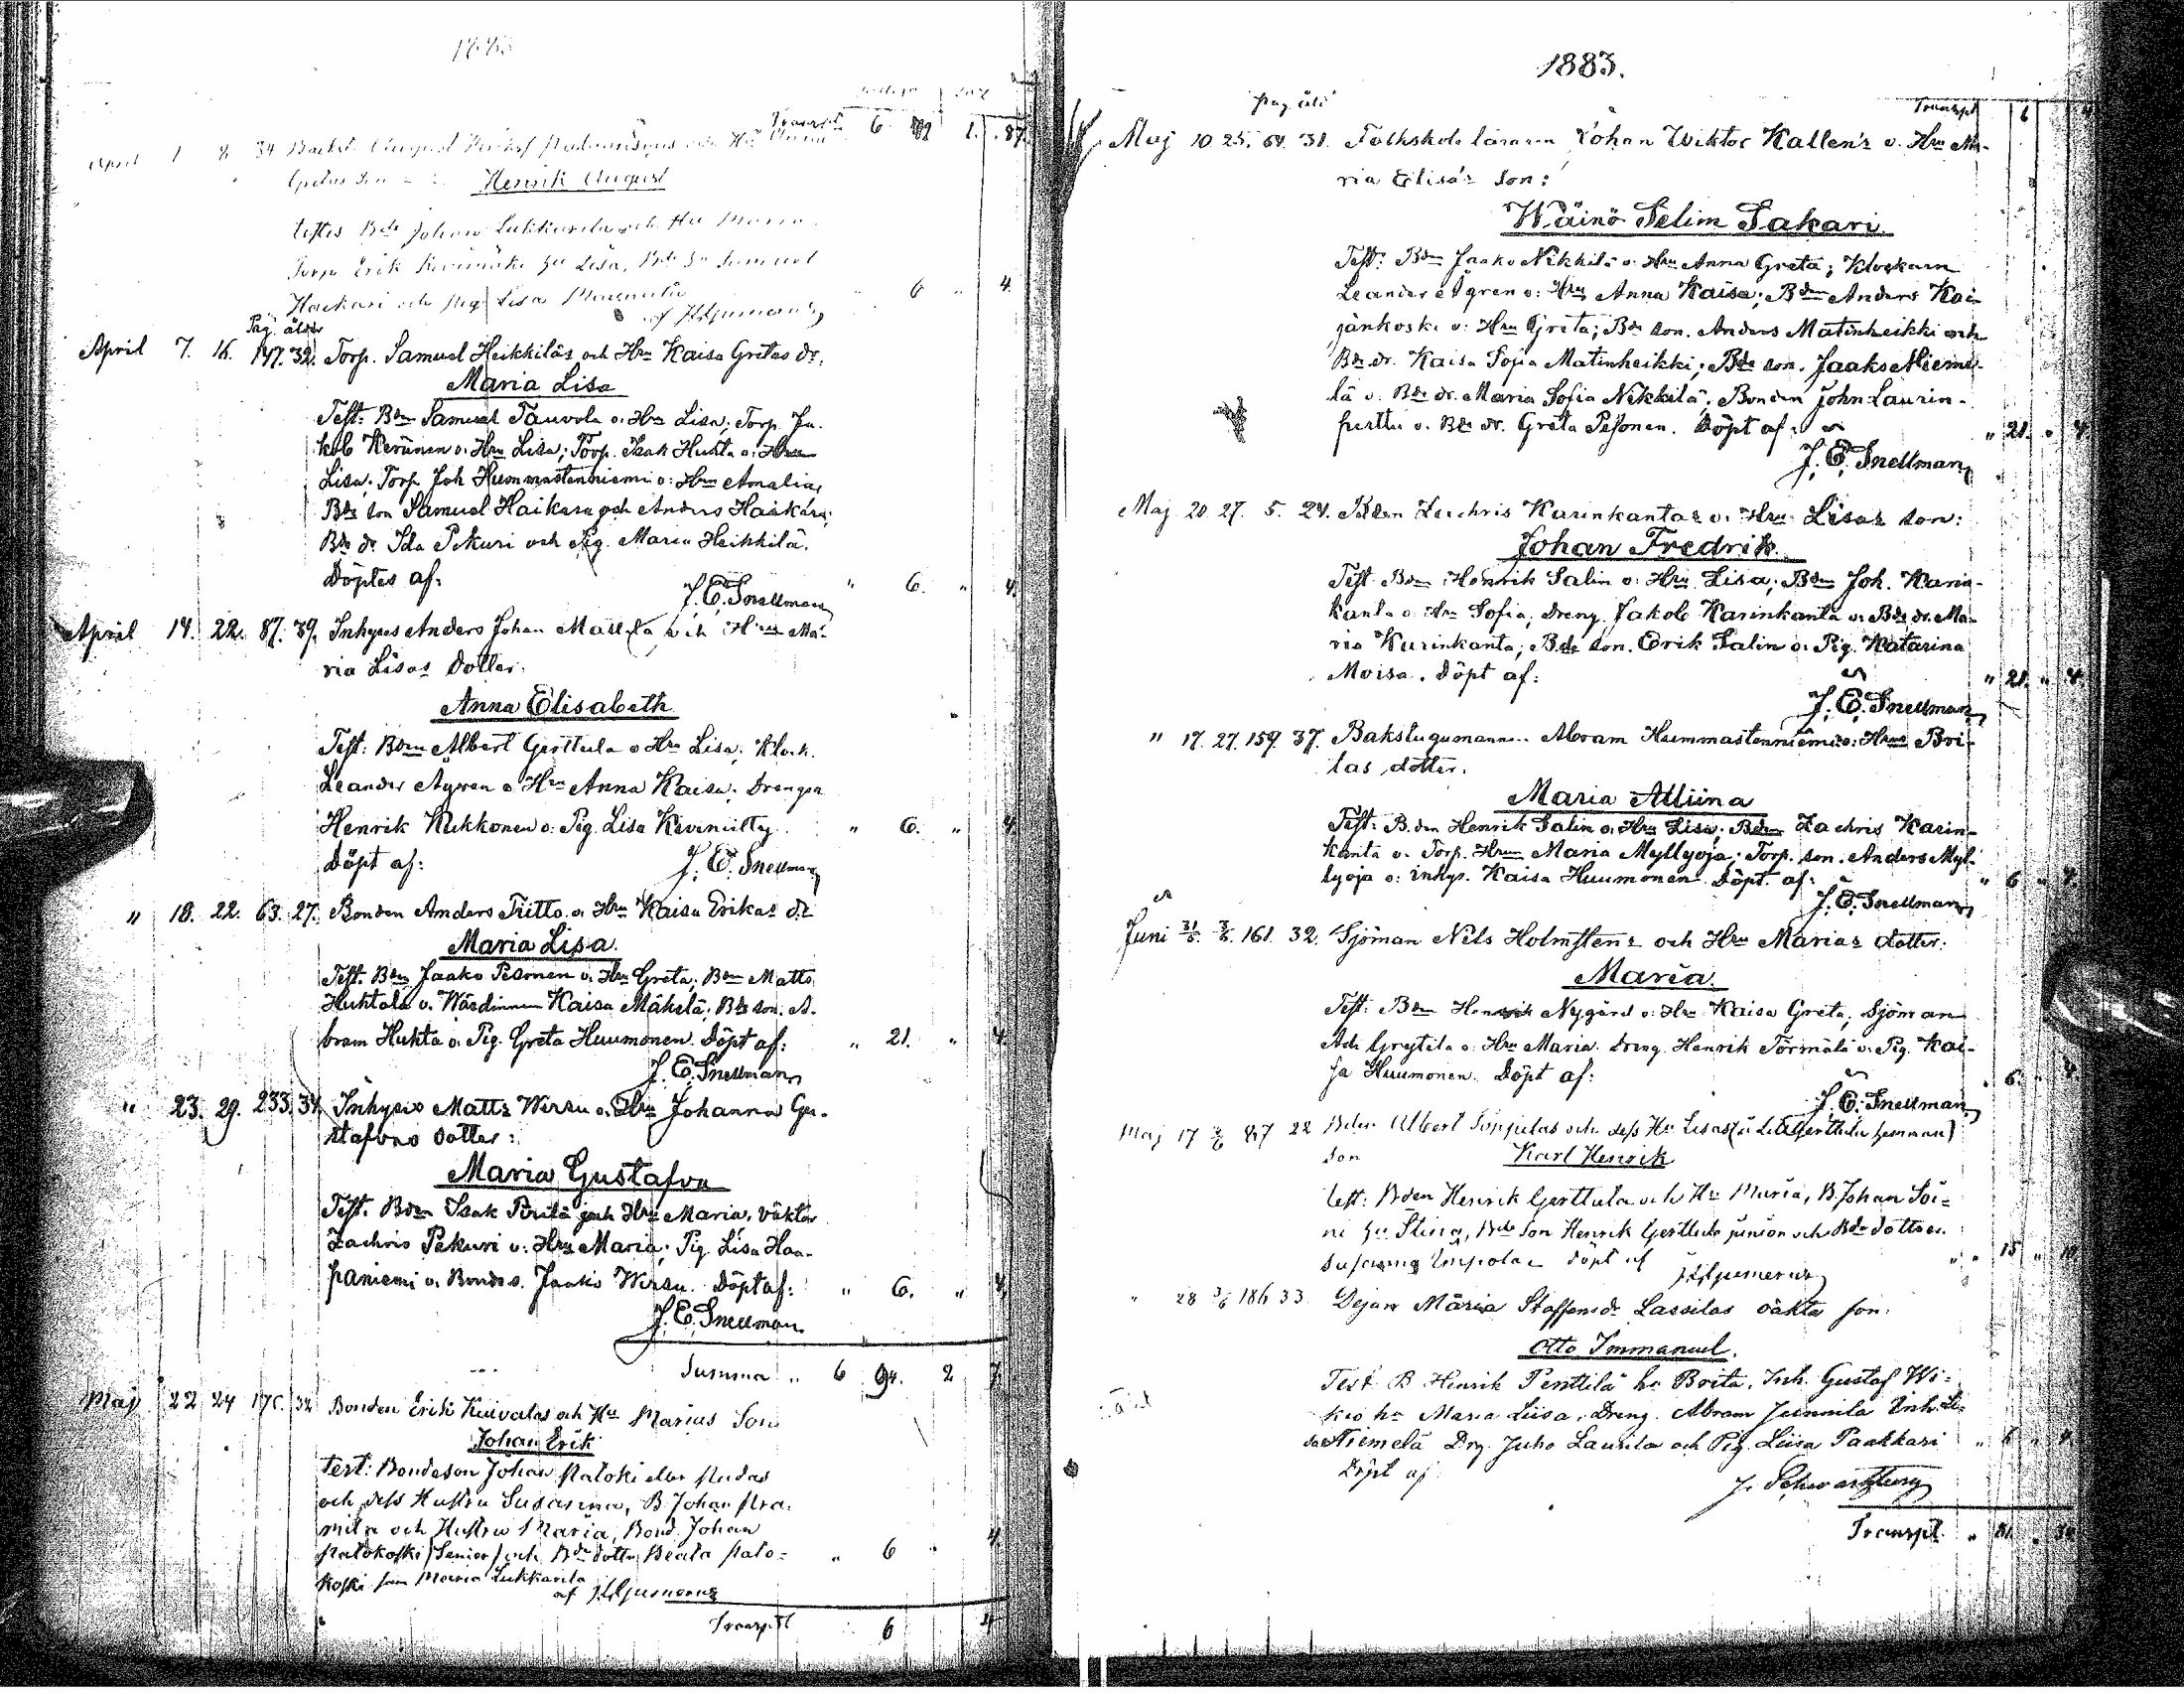 1883
Transpt 6 1. 87.
April 1 8 34 Backst. August och Hu Anna
Gretas Son Henrik August
testes Bde Johan Lukkarila och Hu Maria
Torp Erik hu Lisa, Bde So Samuel
Haikari och Pig Lisa
af 6 " 4.
Pag. ålder
April 7. 16. 147. 32. Torp. Samuel Heikkiläs och Hru Kaisa Gretas dr.
Maria Lisa
Test: Bden Samuel Tauvola o. Hru Lisa; Torp. Ja-
kob Keränen o. Hru Lisa; Torp. Isak Huhta o. Hru
Lisa. Torp. Joh Hummastenniemi o: Hru Amalia,
Bds son Samuel Haikara och Anders Haikara;
Bds dr Ida Pekuri och Pig. Maria Heikkilä.
Döptes af:
J. E. Snellman " 6. " 4.
April 14. 22. 87. 39. Inhyses Anders Johan Mattila och Hrus Ma-
ria Lisas dotter:
Anna Elisabeth
Test: Bden Albert Gerttula o Hru Lisa; Klock.
Leander Ågren o Hru Anna Kaisa; Drengen
Henrik Kukkonen o: Pig. Lisa Kiviniitty. " 6. " 4.
Döpt af: J. E. Snellman
" 18. 22. 63. 27. Bonden Anders Tiitto o. Hru Kaisa Erikas dr
Maria Lisa.
Test. Bden Jaako Pesonen o. Hru Greta; Bden Matts
Huhtala o. Wärdinnan Kaisa Mäkelä; Bds son. A-
bram Huhta o. Pig. Greta Huumonen. Döpt af: " 21. " 4.
J. E. Snellman
" 23. 29. 233. 34. Inhyses Matts Wirsu o. Hru Johanna Gu-
stafvas dotter:
Maria Gustafva
Test. Bden Isak Pörilä och Hru Maria, väktar
Zachris Pekuri o: Hru Maria; Pig. Lisa Haa-
paniemi o. Bondes. Jaako Wirsu. Döpt af: " 6. " 4.
J. E. Snellman
Summa " 6 94. 2 7.
Maj 22 24 170. 32 Bonden Erik Kuivalas och Hu Marias Son
Johan Erik
test: Bondeson Johan
och dess Hustru Susanna, B Johan
och Hustru Maria, Bond. Johan
(Senior) och Bde dotter Beata Palo-
koski Maria Lukkarila " 6 " 4
af
Transpt 6 4
1883.
pag ålder
Transpt 6
Maj 10 25. 64. 31. Folkskole läraren Johan Wiktor Kallen's o. Hru Ma-
ria Elisa's son:
Wäinö Selim Sakari
Test: Bden Jaako Nikkilä o. Hru Anna Greta; Klockaren
Leander Ågren o: Hru Anna Kaisa; Bden Anders Kai-
jänkoski o: Hru Greta; Bds son. Anders Matinheikki och
Bds dr. Kaisa Sofia Matinheikki; Bds son. Jaako Nieme-
lä o. Bds dr. Maria Sofia Nikkilä; Bonden John Laurin-
perttu o. Bds dr. Greta Pesonen. Döpt af: " 21. " 4.
J. E. Snellman
Maj 20 27. 5. 24. Bden Zachris Karinkantas o. Hru Lisas son:
Johan Fredrik
Test Bden Henrik Salin o: Hru Lisa; Bden Joh. Karin-
kanta o. Hru Sofia, Dreng. Jakob Karinkanta o. Bds dr. Ma-
ria Karinkanta; Bds son. Erik Salin o. Pig. Katarina
Moisa. Döpt af: " 21. " 4.
J. E. Snellman
" 17. 27. 159. 37. Bakstugumannen Abram Hummastenniemi o: Hrus Bri-
tas dotter.
Maria Alliina
Test: B.den Henrik Salin o. Hru Lisa; Bden Zachris Karin-
kanta o. Torp. Hrun Maria Myllyoja; Torp. son. Anders Myl-
lyoja o: inhys. Kaisa Huumonen. Döpt. af: " 6 " 4.
J. E. Snellman
Juni 31/5. 3/6. 161. 32. Sjöman Nils Holmstens och Hru Marias dotter:
Maria.
Test: Bden Henrik Nygård o: Hru Kaisa Greta; Sjöman
Ad. o: Hru Maria. Dreng. Henrik Törmälä o. Pig. Kai-
sa Huumonen. Döpt af: " 6. " 4.
J. E. Snellman
Maj 17 3/6 87 22 Bden Albert och dess Hu Lisas
son Karl Henrik
test: Bden Henrik Gerttula och Hu Maria, B. Johan Soi-
ni hu Stina, Bde Son Henrik Gerttula junior och Bde dotter
Susanna döpt af " 15 " 10
" 28 3/6 186 33. Dejan Maria Staffansdr Lassilas oäkta son:
Otto Immanuel.
Test B Henrik Penttilä hu Brita, Inh. Gustaf Wi-
kio hu Maria Liisa, Dreng. Abram Junnila Inh. Li-
sa Niemelä Drg. Juho Laurila och Pig. Liisa Paakkari " 6 " 4
Döpt af
J. Schwartzberg
Transpt. " 81. " 34